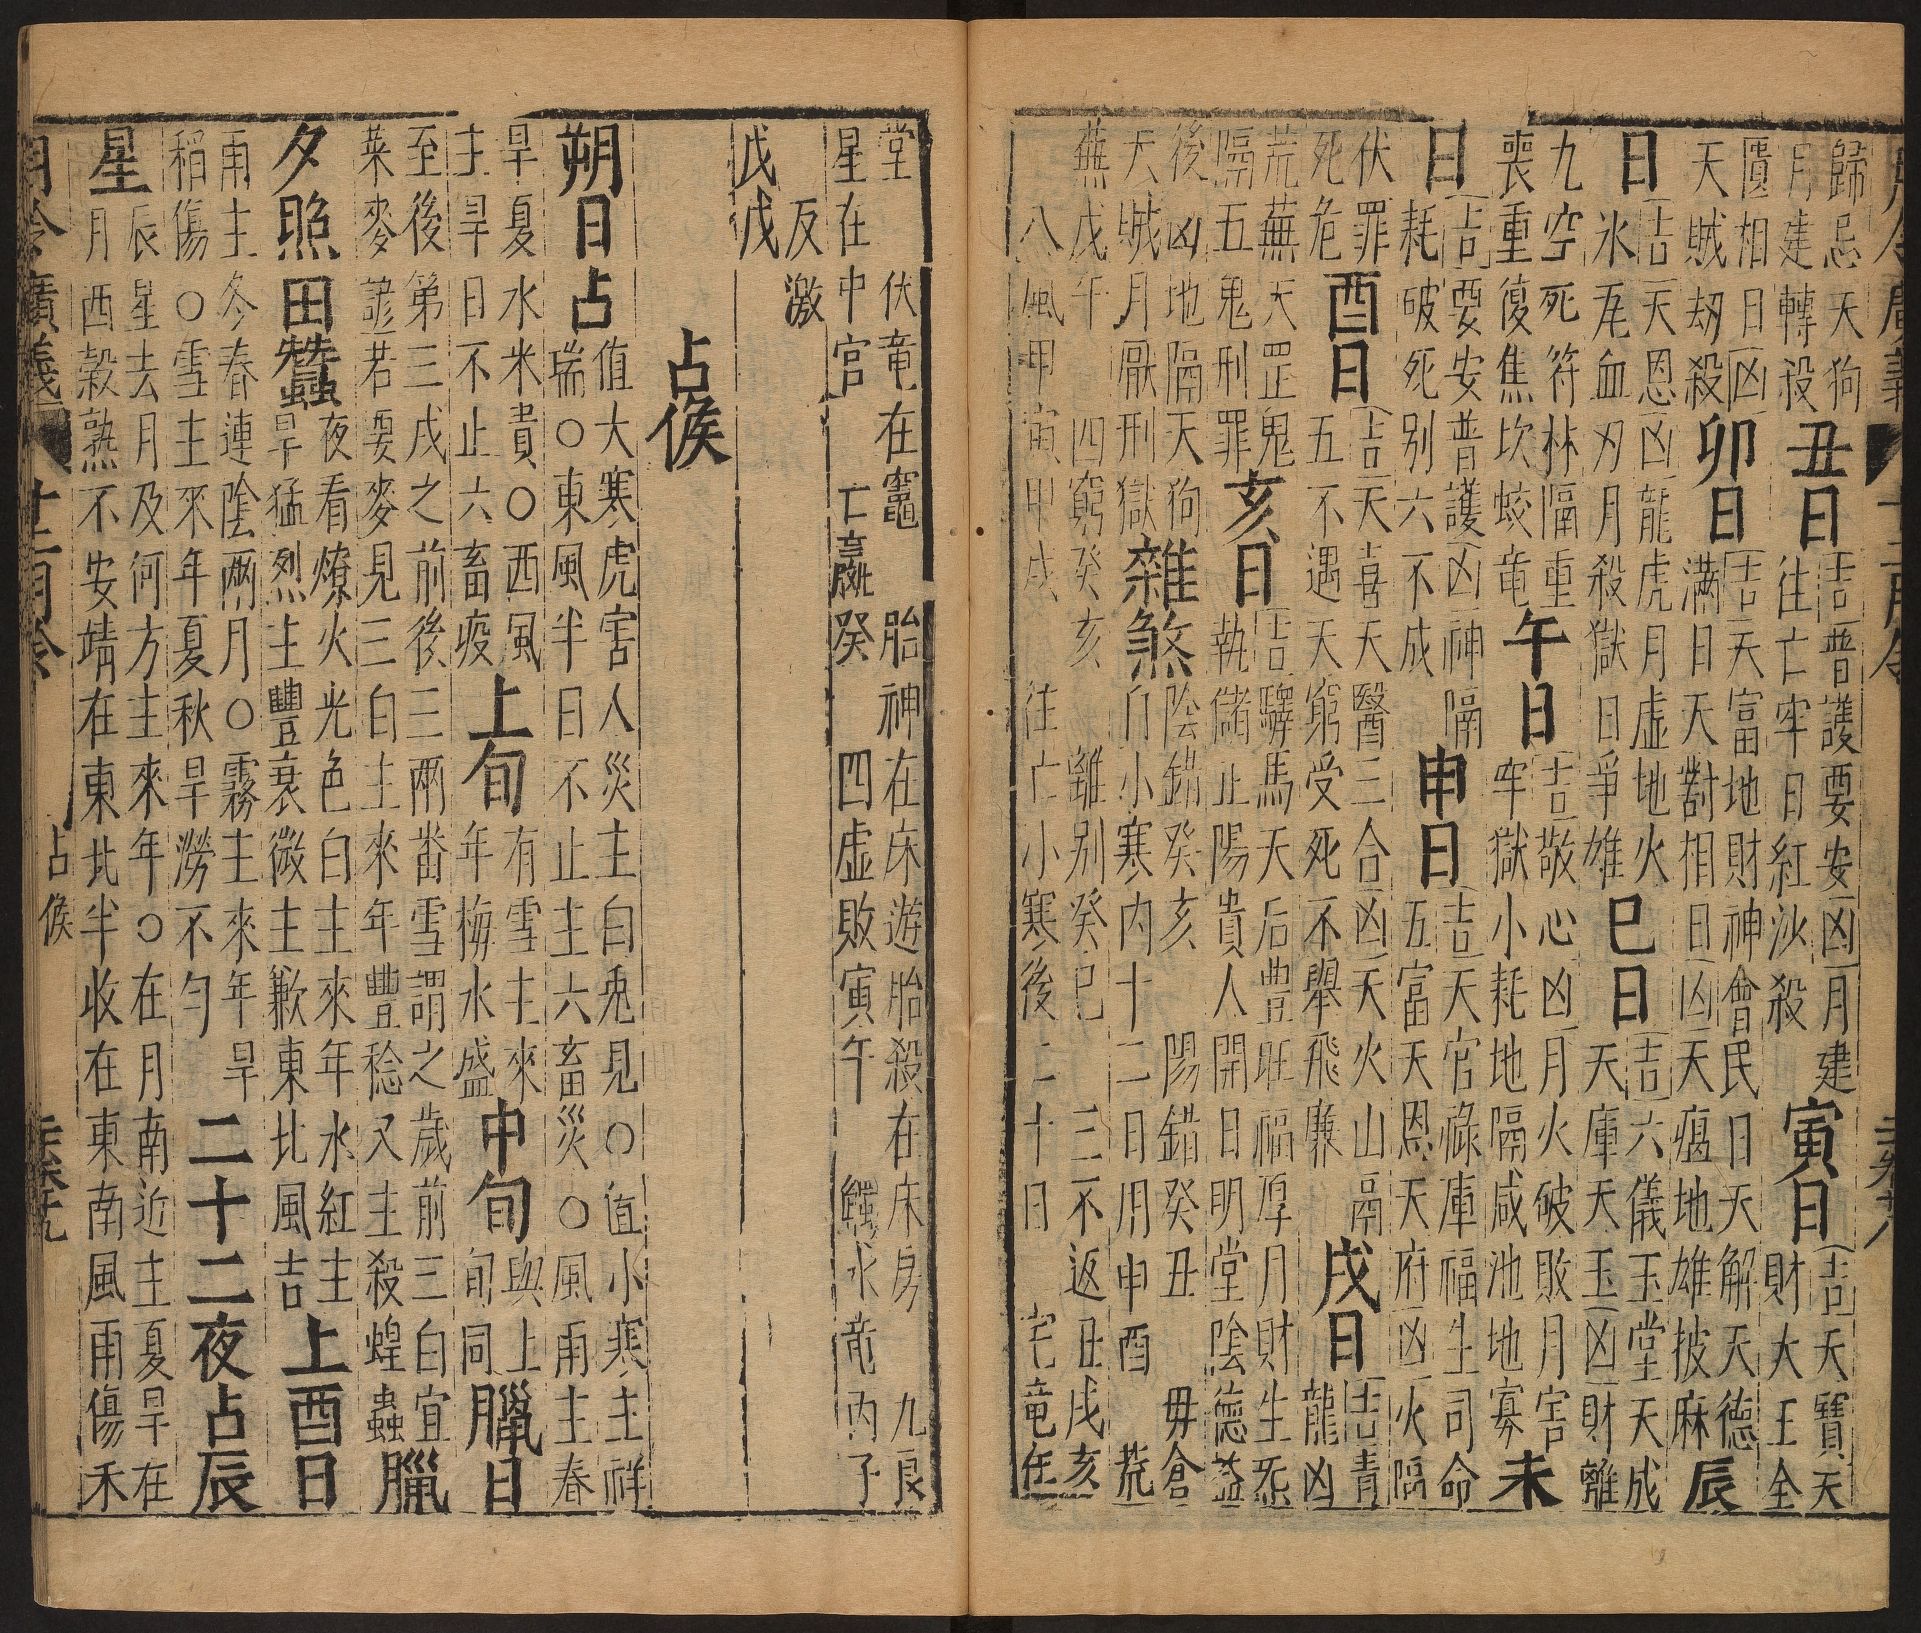 歸忌天狗
丑日
吉普護要安凶月建
月建轉殺
往亡牢日紅沙殺
寅日
吉天寶天
匱相日凶
財大王全
天賊刼殺
卯日
吉天富地財神會民日天解天德
滿日天對相日凶天瘟地雄披麻
辰
日
吉天恩凶龍虎月虛地火
氷瓦血刃月殺獄日爭雄
巳日
吉六儀玉堂天成
天庫天玉凶財離
九空死符林隔重
喪重復焦坎蛟竜
午日
吉敬心凶月火破敗月害
牢獄小耗地隔咸池地寡
未
日
吉要安普護凶神隔
耗破死别六不成
申日
吉天官祿庫福生司命
五富天恩天府凶火隔
伏罪
死危
酉日
吉天喜天醫三合凶天火山鬲
五不遇天窮受死不舉飛廉
戌日
吉青
龍凶
荒蕪天罡鬼
隔五鬼刑罪
亥日
吉驛馬天后豊旺福厚月財生炁
執儲止陽貴人開日明堂陰德益
後凶地隔天狗
天賊月厭刑獄
雜煞
陰錯癸亥 陽錯癸丑 毋倉
自小寒内十二日用申酉 荒
蕪戊午 四窮癸亥 離别癸巳 三不返丑戌亥
八風甲寅甲戌 往亡小寒後二十日 宅竜在
堂 伏竜在竈 胎神在床遊胎殺在床房 九良
星在中官 亡嬴癸 四虛敗寅午 觸水竜丙子
反激
戊戌
占候
朔日占
值大寒虎害人災主白兎見○值小寒主祥
瑞○東風半日不止主六畜災○風雨主春
旱夏水米貴○西風
主旱日不止六畜疫
上旬
有雪主來
年梅水盛
中旬
與上
旬同
臘日
至後第三戌之前後三兩畨雪謂之歲前三白宜
菜麥諺若要麥見三白主來年豐稔又主殺蝗蟲
臘
夕照田蠶
夜看燎火光色白主來年水紅主
旱猛烈主豐衰微主歉東北風吉
上酉日
雨主冬春連陰兩月○霧主來年旱
稻傷○雪主來年夏秋旱澇不勻
二十二夜占辰
星
辰星去月及何方主來年○在月南近主夏旱在
月西穀熟不安靖在東北半收在東南風雨傷禾
月令廣義
十二月令
占候